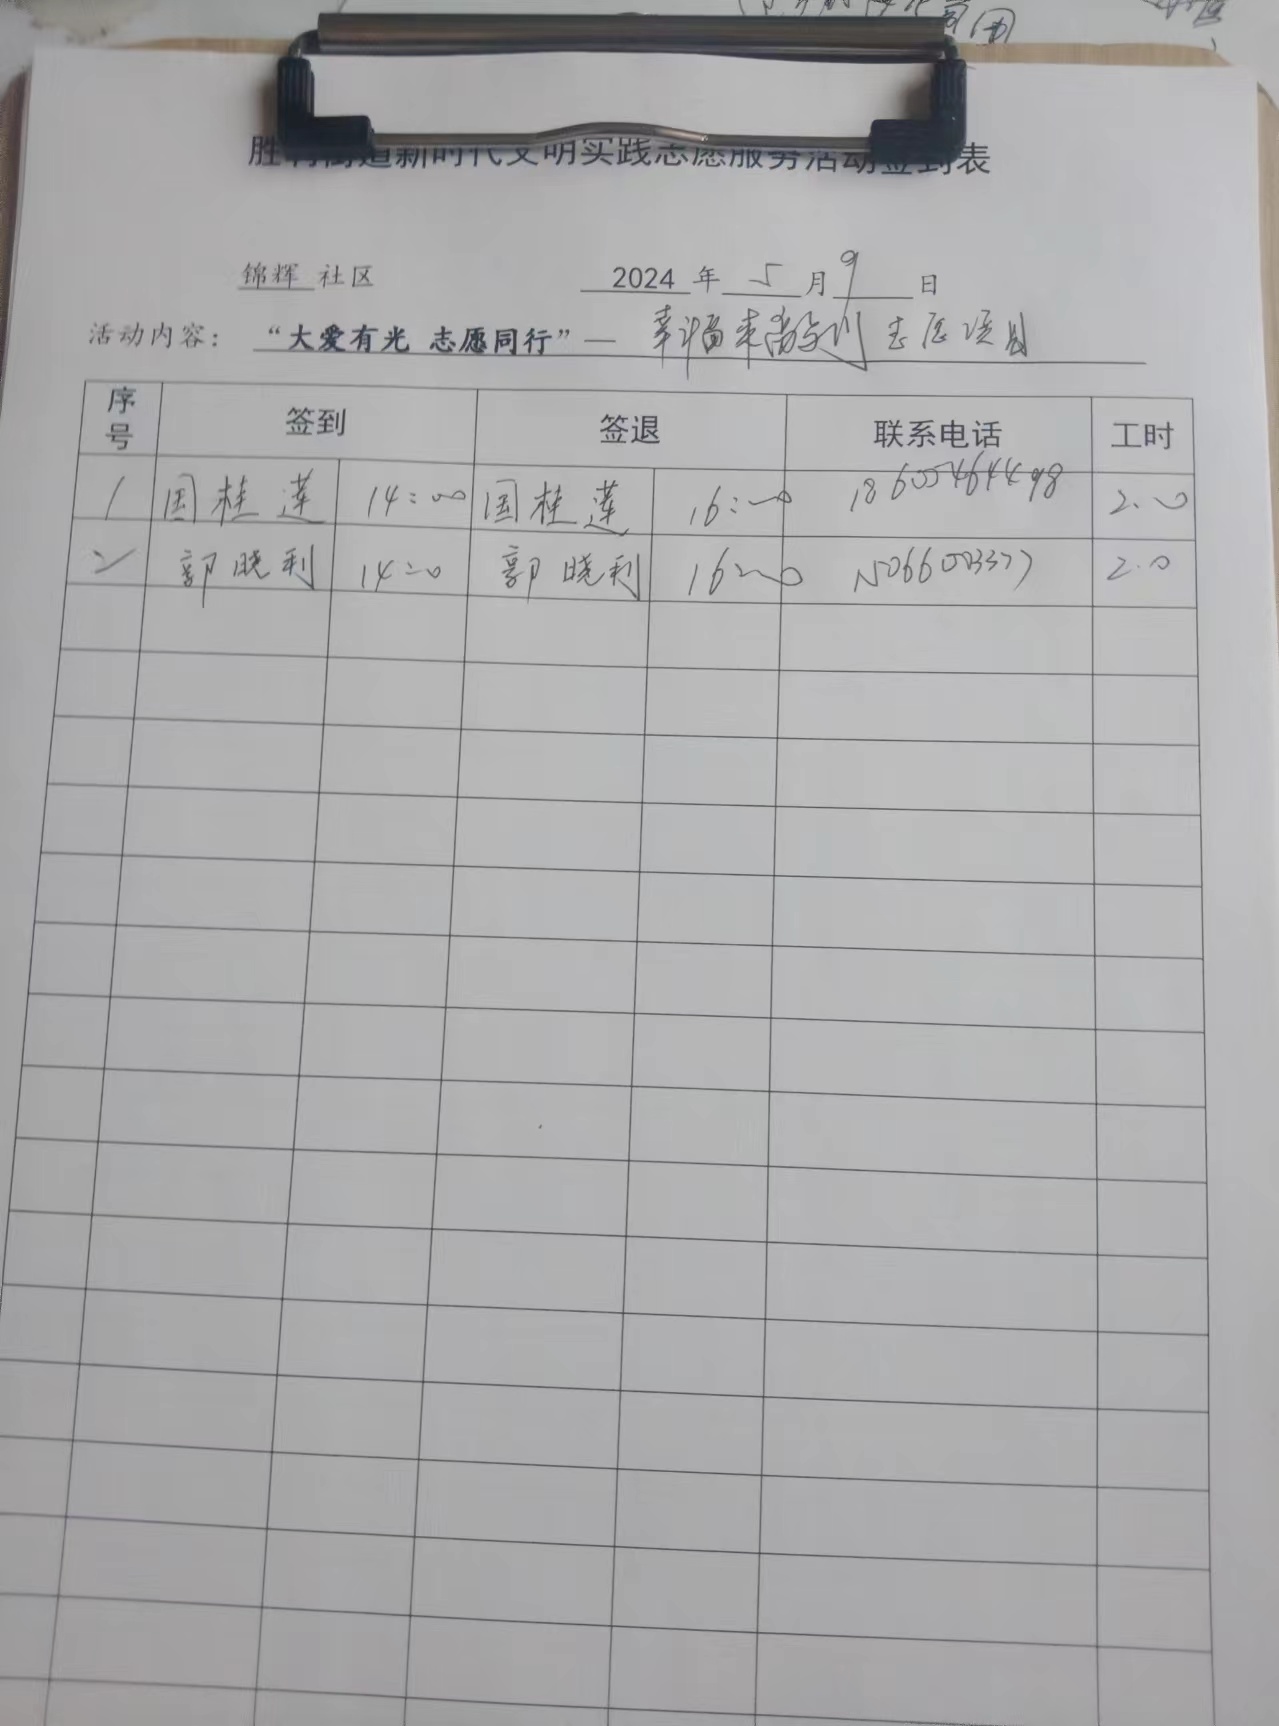 胜利街道新时代文明实践志愿服务活动签到表
锦辉 社区 2024 年 5 月 9 日
活动内容： “大爱有光 志愿同行”— 幸福来敲门 志愿项目
序号 签到 签退 联系电话 工时
1 国桂莲 14:00 国桂莲 16:00 18605464498 2.0
2 郭晓利 14:00 郭晓利 16:00 2.0